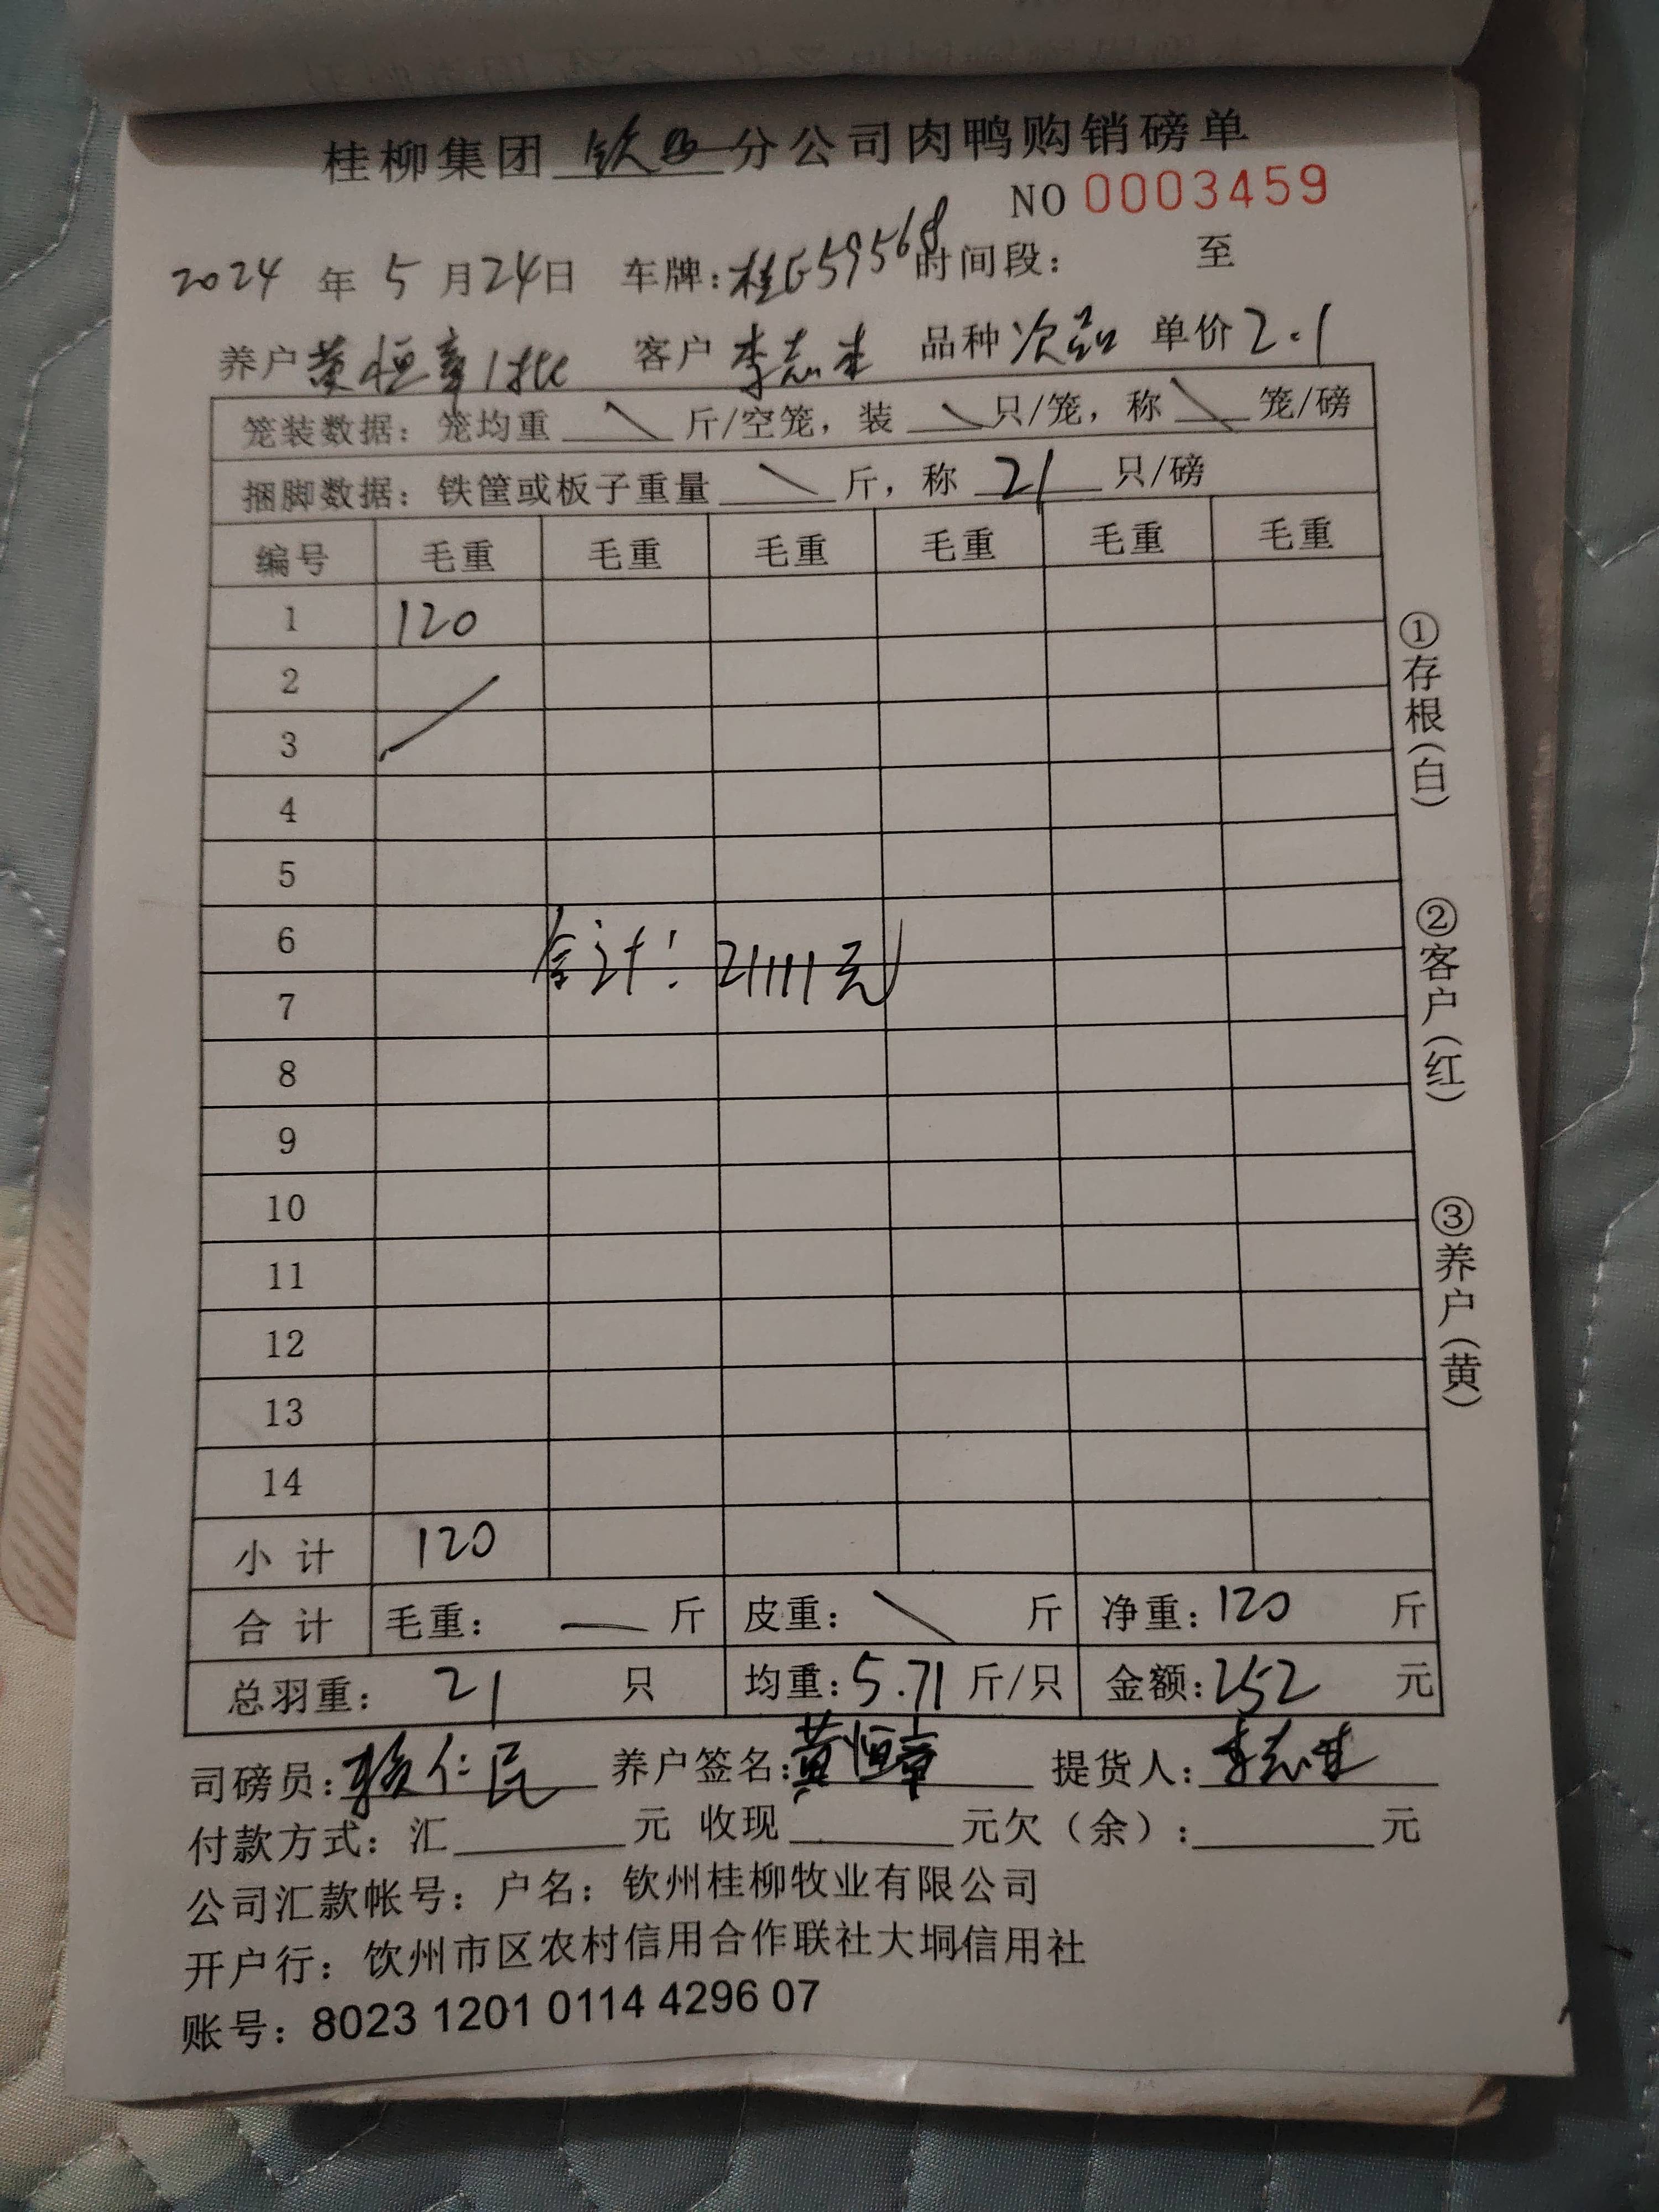 桂柳集团 钦州 分公司肉鸭购销磅单
NO 0003459
2024 年 5 月 24 日 车牌：桂G59568 时间段： 至
养户 黄恒章1批 客户 李志 品种 次品 单价 2.1
笼装数据：笼均重 \ 斤/空笼，装 \ 只/笼，称 \ 笼/磅
捆脚数据：铁筐或板子重量 \ 斤，称 21 只/磅
编号 毛重 毛重 毛重 毛重 毛重 毛重
1 120
2
3
4
5
6
合计：21111元
7
8
9
10
11
12
13
14
小计 120
合计 毛重： — 斤 皮重： \ 斤 净重：120 斤
总羽重： 21 只 均重：5.71 斤/只 金额：252 元
司磅员：赖仁民 养户签名：黄恒章 提货人：李志
付款方式：汇 元 收现 元欠（余）： 元
公司汇款帐号：户名：钦州桂柳牧业有限公司
开户行：钦州市区农村信用合作联社大垌信用社
账号：8023 1201 0114 4296 07
①存根（白）
②客户（红）
③养户（黄）